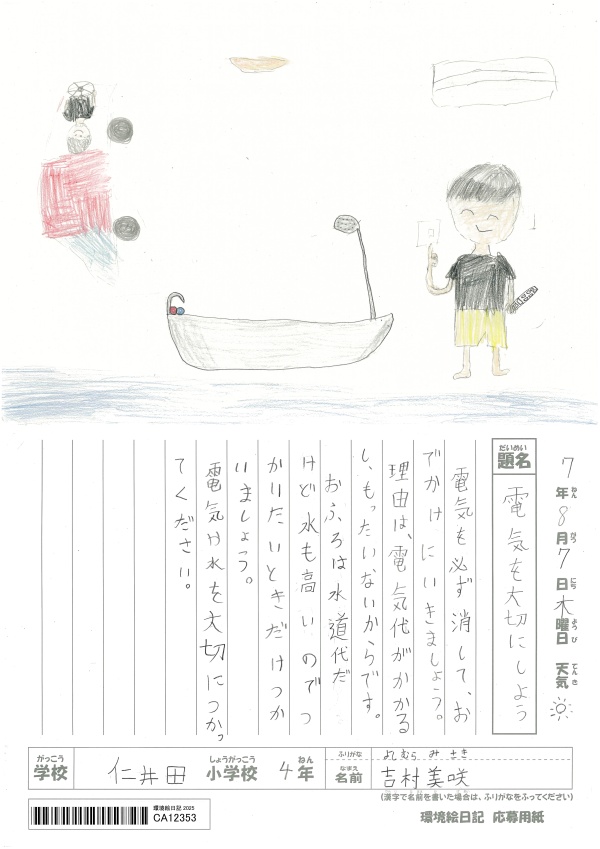 7年ねん8月がつ7日にち木曜日ようび 天気てんき
題名だいめい 電気を大切にしよう
電気を必ず消して、お
でかけにいきましょう。
理由は、電気代がかかる
し、もったいないからです。
おふろは水道代だ
けど水も高いのでつ
かりたいときだけつか
いましょう。
電気や水を大切につかっ
てください。
学校がっこう 仁井田 小学校しょうがっこう 4年ねん
ふりがな よしむら みさき
名前なまえ 吉村美咲
(漢字で名前を書いた場合は、ふりがなをふってください)
環境絵日記 2025
CA12353
環境絵日記 応募用紙